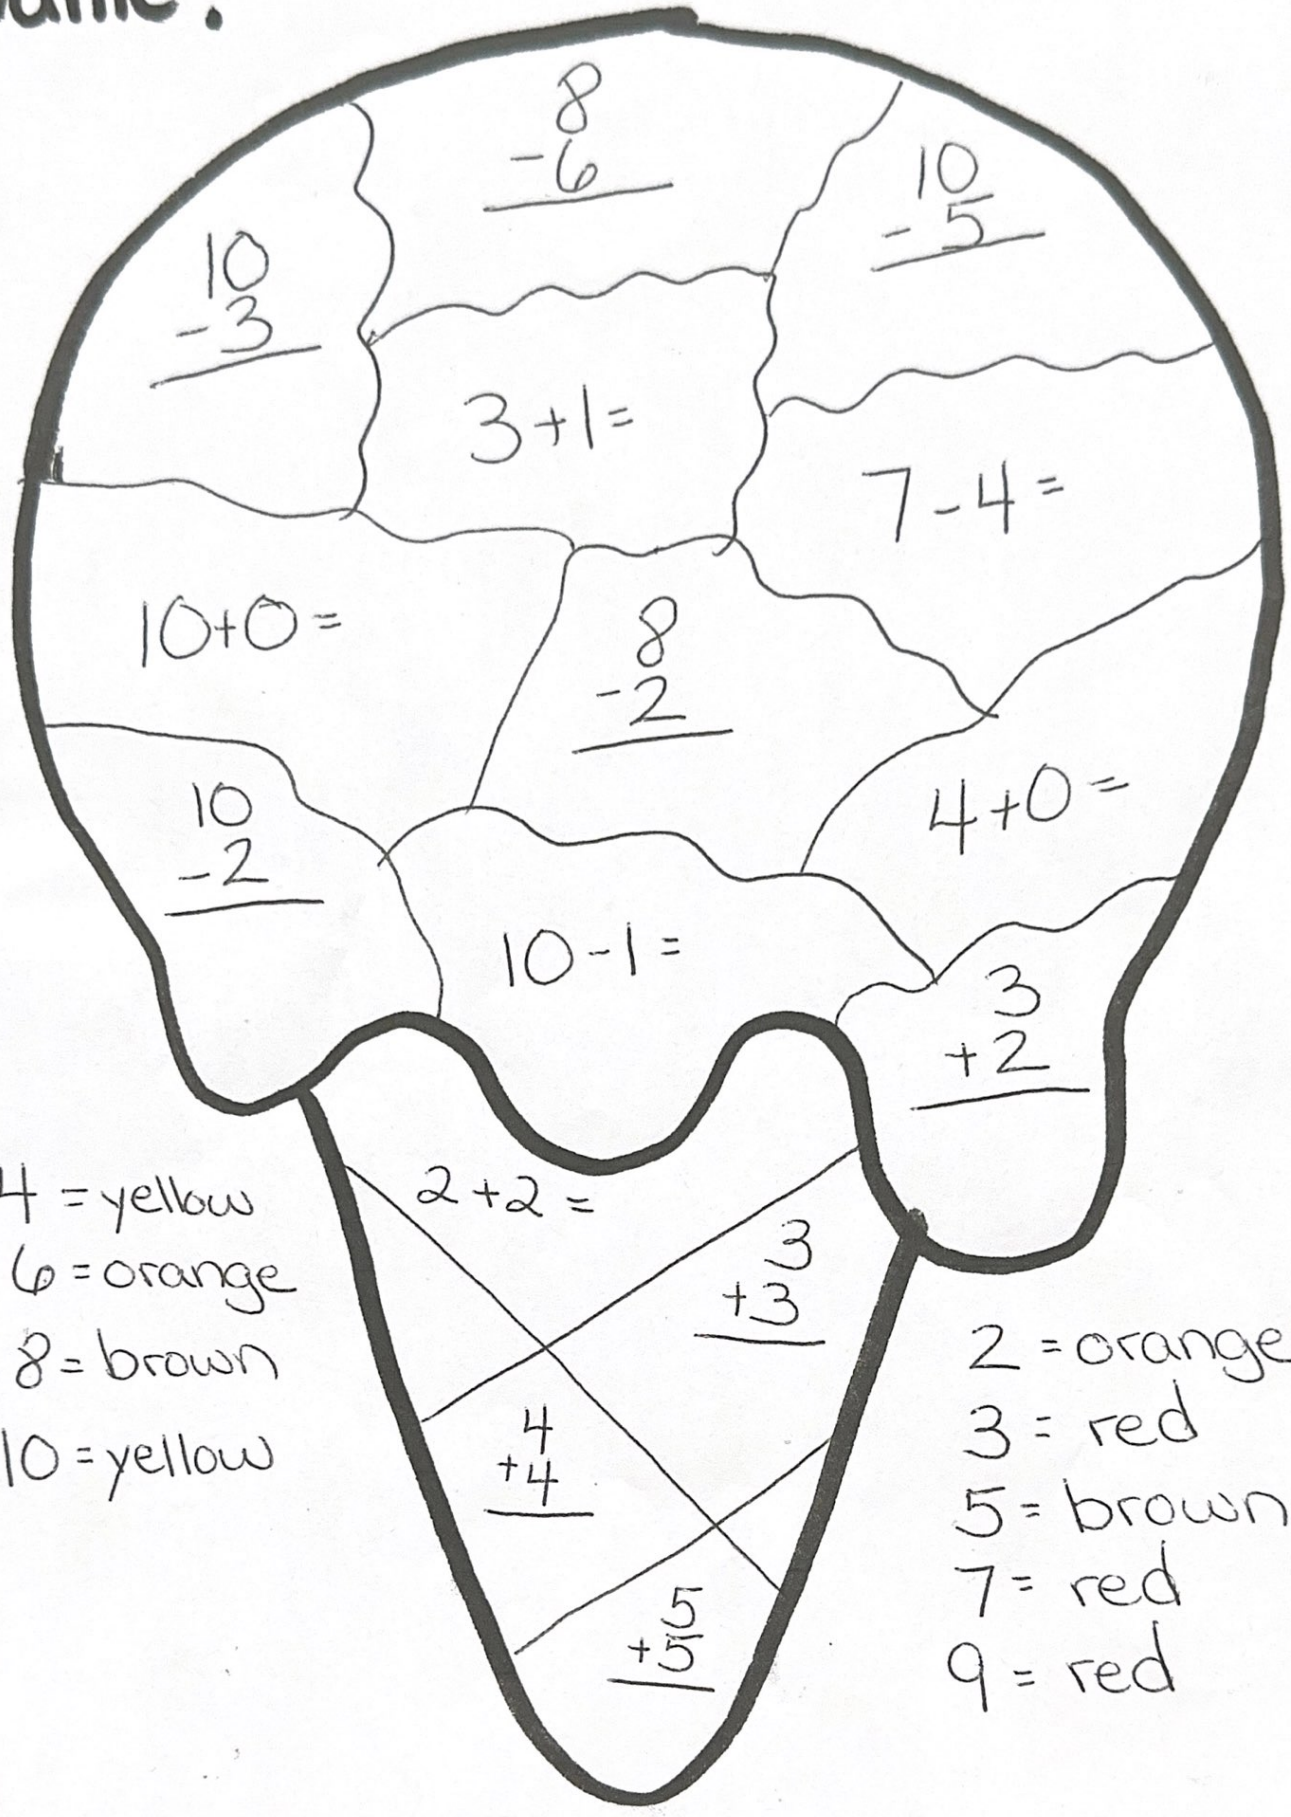 8
-6
10
-5
10
-3
3+1=
7-4=
10+0=
8
-2
10
-2
4+0=
10-1=
3
+2
2+2=
3
+3
4
+4
5
+5
4 = yellow
6 = orange
8 = brown
10 = yellow
2 = orange
3 = red
5 = brown
7 = red
9 = red